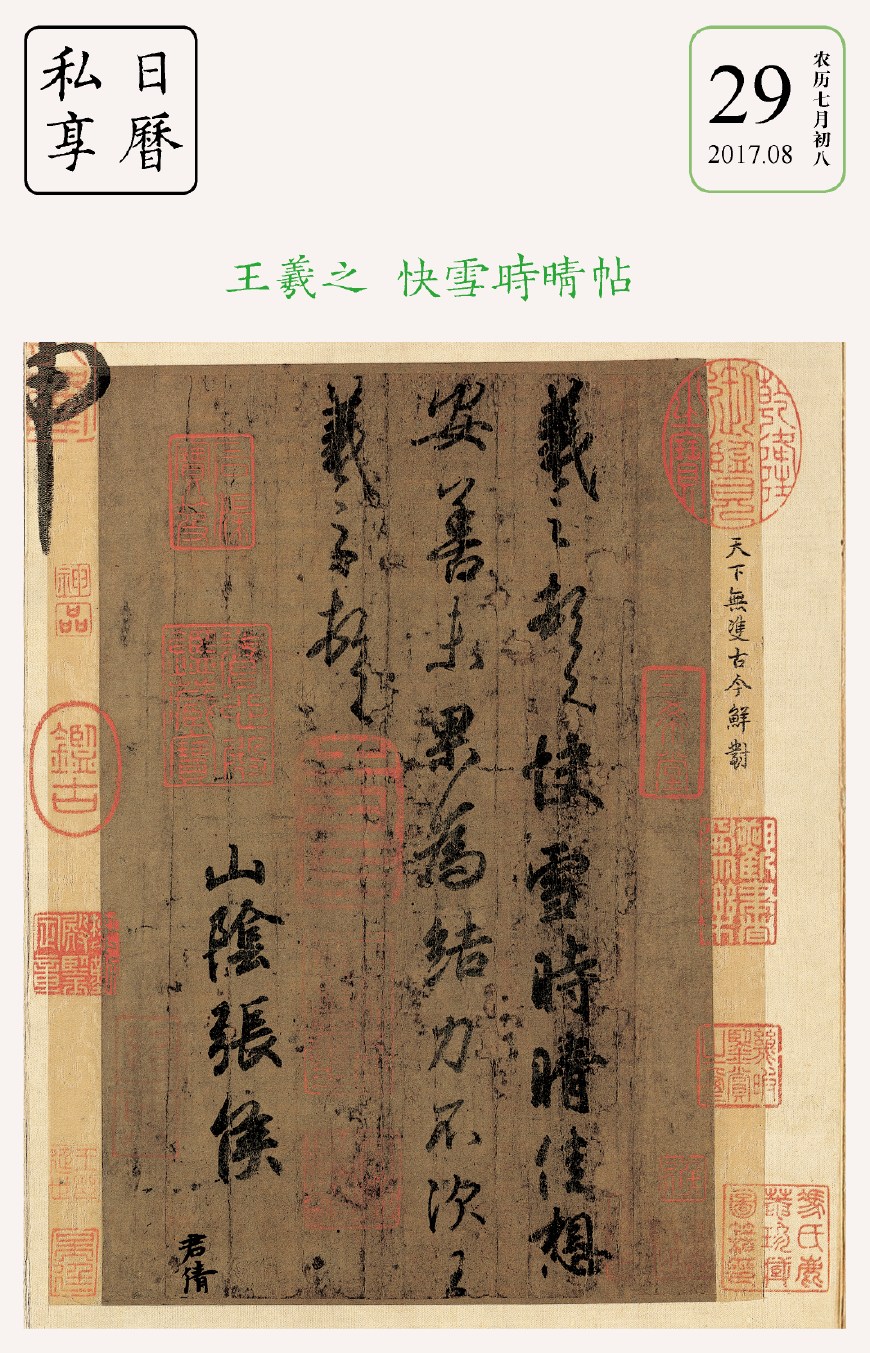 私享
日曆
29
2017.08
农历七月初八
王羲之 快雪時晴帖
天下無雙古今鮮對
羲之頓首快雪時晴佳想
安善未果為結力不次王
羲之頓首
山陰張侯
君倩
三希堂
石渠寶笈
養心殿鑑藏寶
神品
鑑古